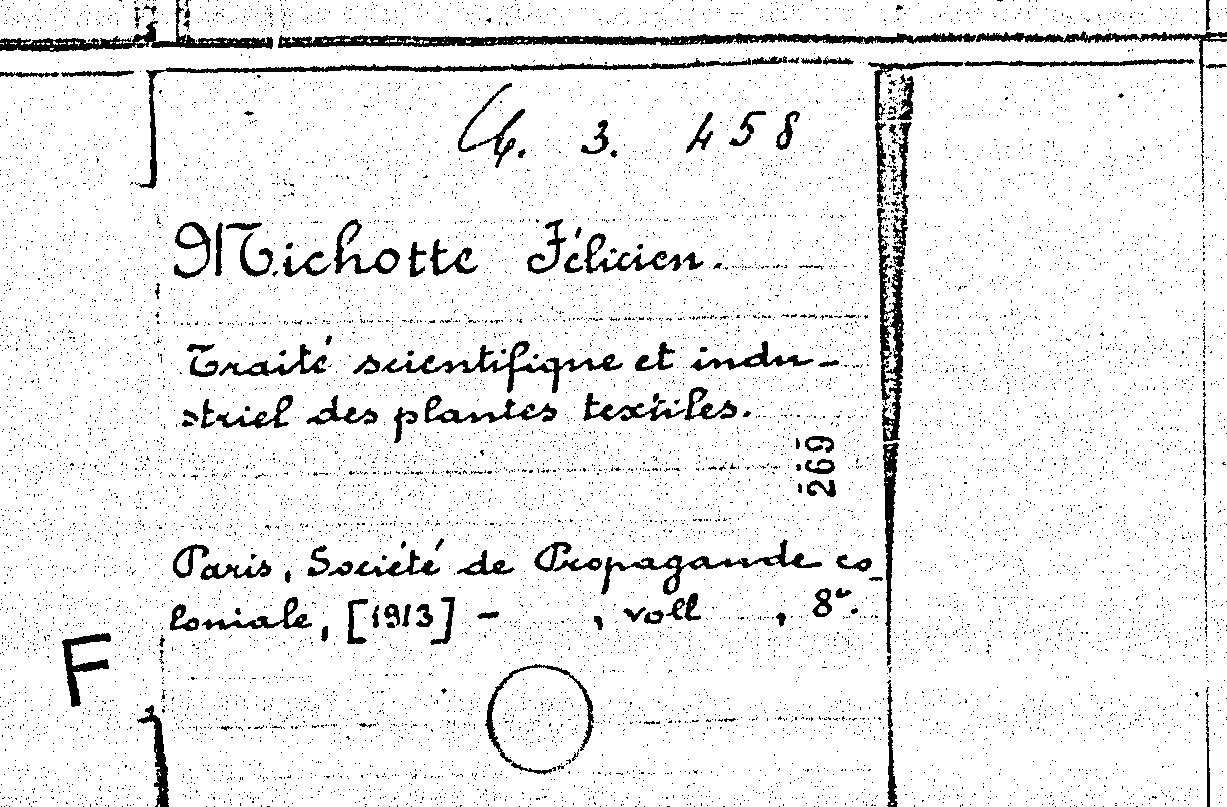 3. 458
Michotte Félicien.
Traité scientifique et indu-
striel des plantes textiles.
269
Paris, Société de Propagande co-
loniale, [1913] - , voll , 8°.
F